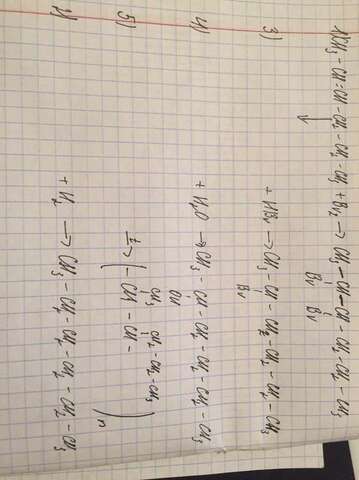 1) CH₃ - CH = CH - CH₂ - CH₂ - CH₃ + Br₂ → CH₃ - CH - CH - CH₂ - CH₂ - CH₃
Br Br
3) + HBr → CH₃ - CH - CH₂ - CH₂ - CH₂ - CH₃
Br
4) + H₂O → CH₃ - CH - CH₂ - CH₂ - CH₂ - CH₃
OH
CH₃ CH₂ - CH₂ - CH₃
5) t→ ( - CH - CH - )n
2) + H₂ → CH₃ - CH₂ - CH₂ - CH₂ - CH₂ - CH₃